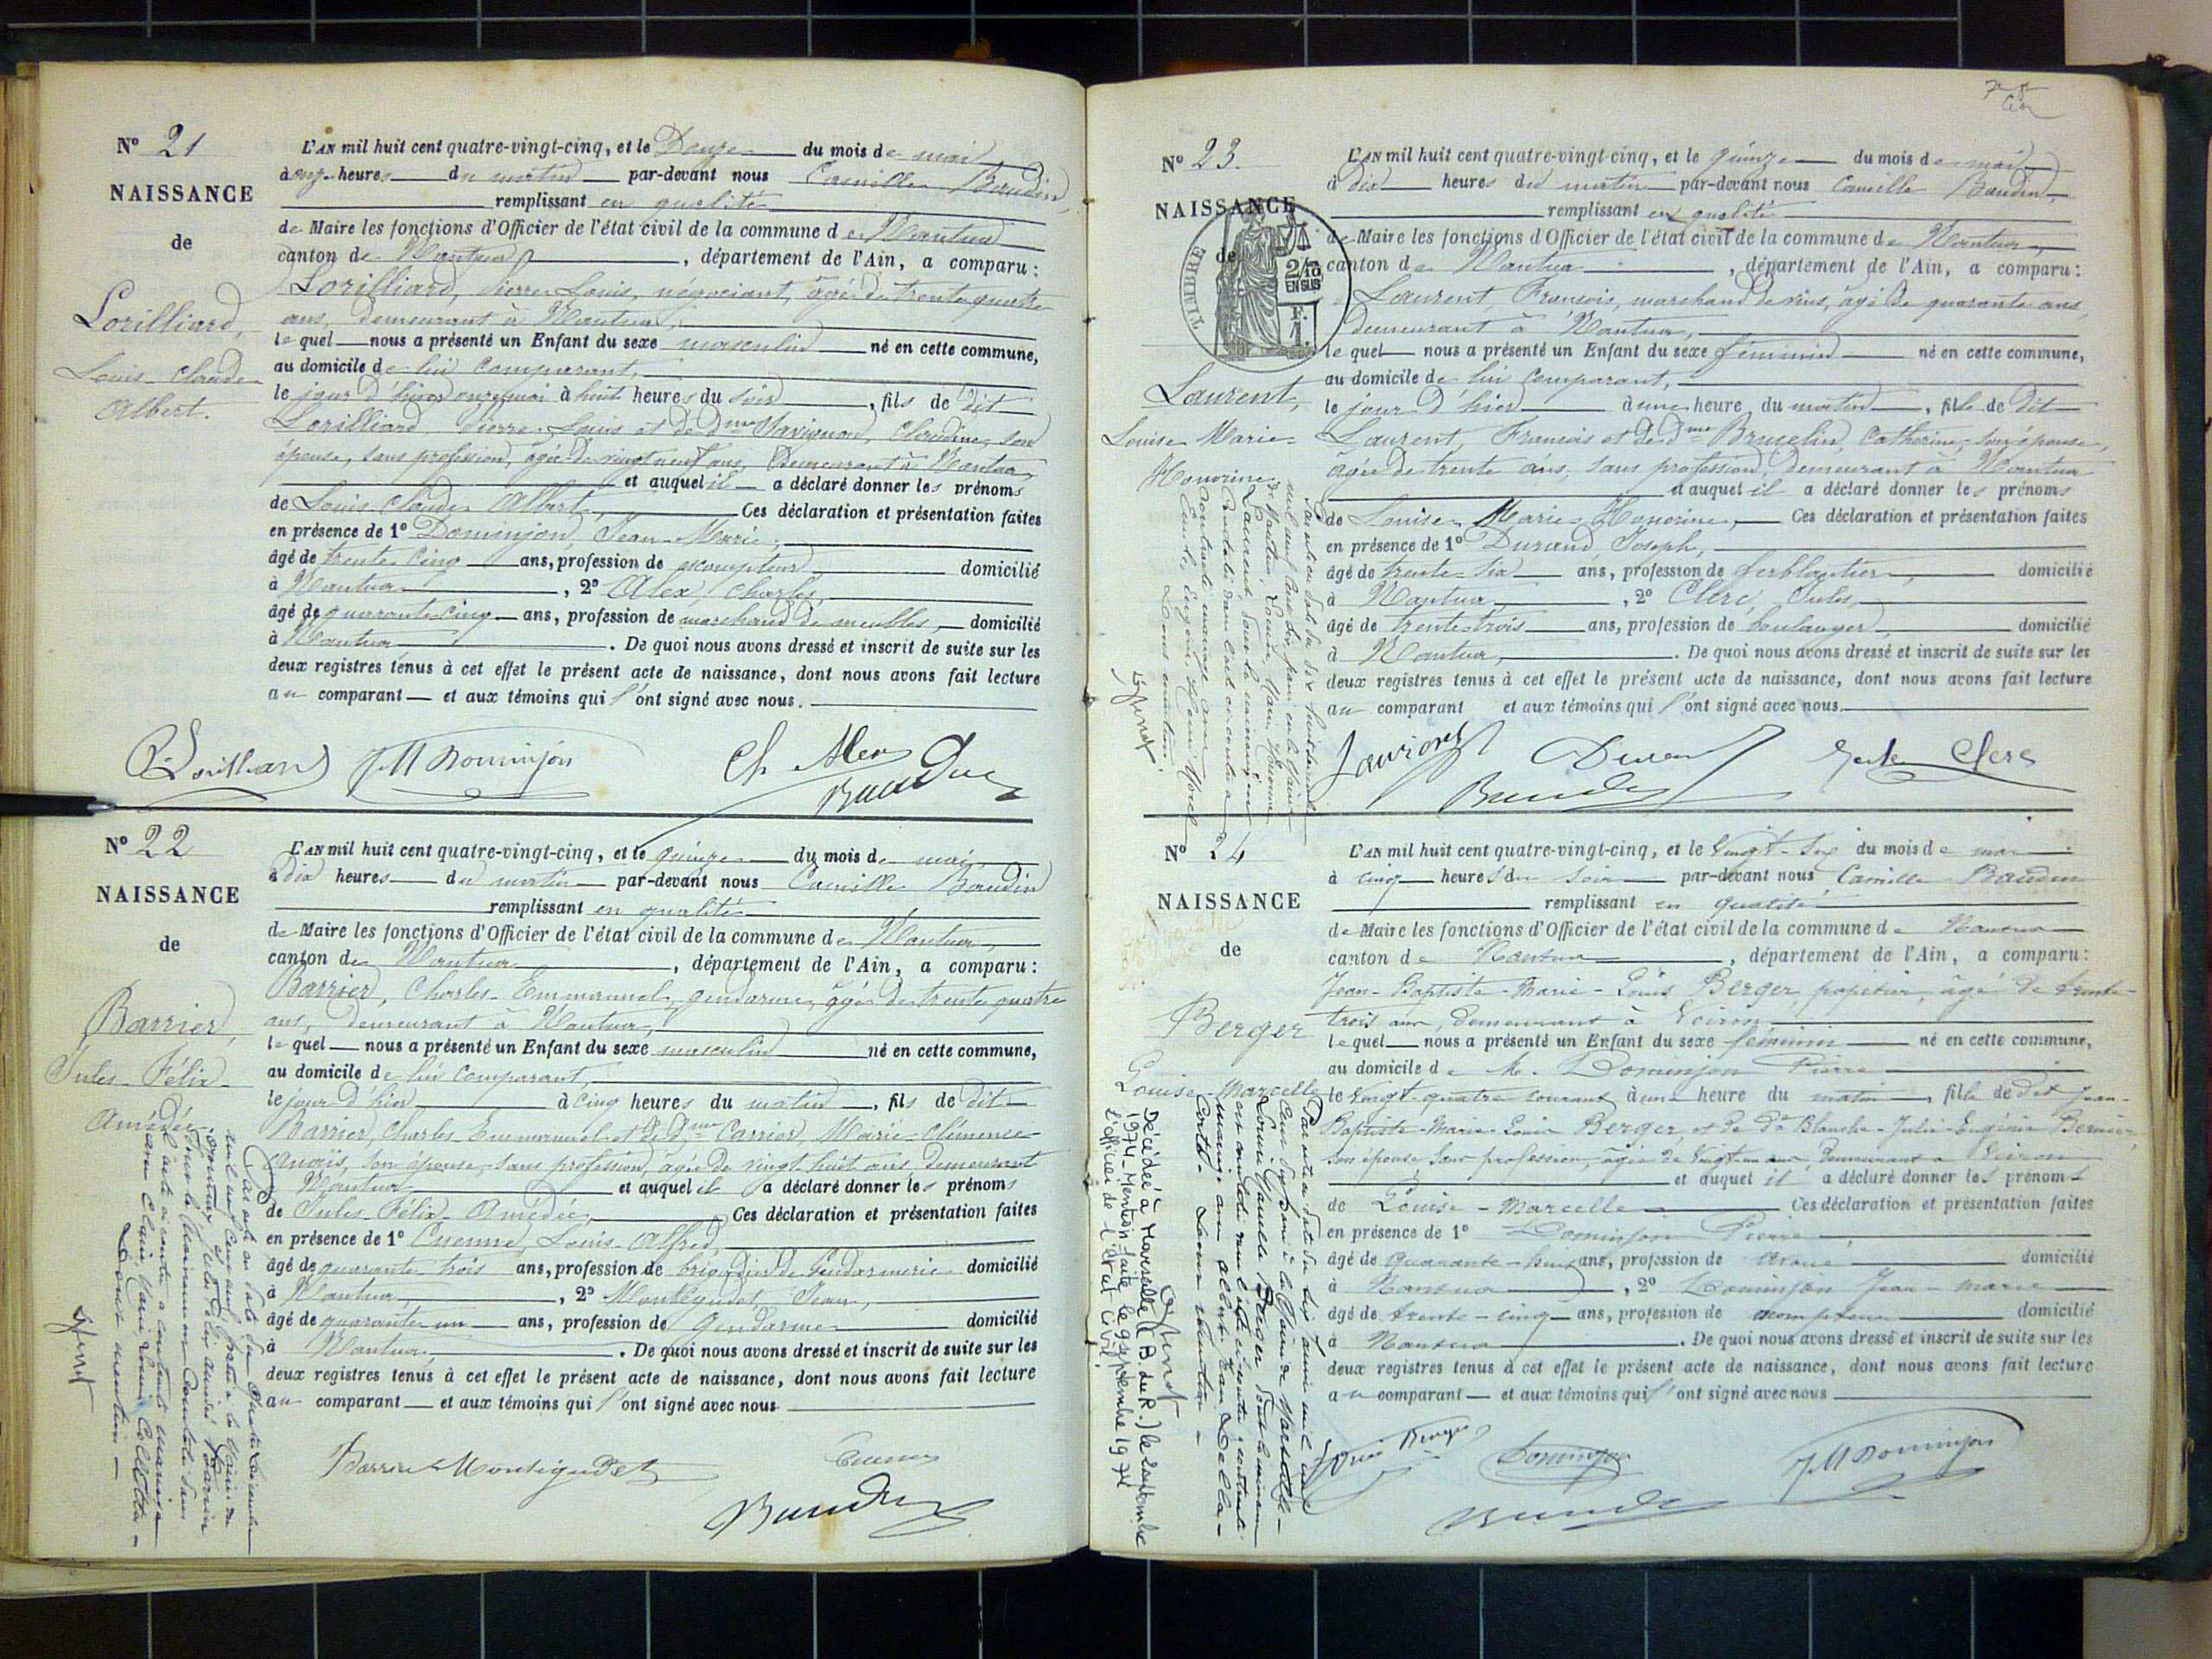 N° 21
NAISSANCE
de
Lorilliard,
Louis-Claude
Albert.
L'AN mil huit cent quatre-vingt-cinq, et le Douze du mois de mai
à onze heures du matin par-devant nous Camille Baudin,
remplissant en qualité
de Maire les fonctions d'Officier de l'état civil de la commune de Nantua
canton de Nantua, département de l'Ain, a comparu :
Lorilliard, Pierre Louis, négociant, âgé de trente quatre
ans, demeurant à Nantua,
lequel nous a présenté un Enfant du sexe masculin né en cette commune,
au domicile de lui comparant,
le jour d'hier onze mai à huit heures du soir, fils de dit
Lorilliard, Pierre-Louis et de dme Claudine, son
épouse, sans profession, âgée de vingt neuf ans, demeurant à Nantua
et auquel il a déclaré donner les prénoms
de Louis Claude Albert, Ces déclaration et présentation faites
en présence de 1° Dominjon, Jean-Marie,
âgé de trente cinq ans, profession de escompteur domicilié
à Nantua, 2° Alex, Charles,
âgé de quarante cinq ans, profession de marchand de meubles, domicilié
à Nantua. De quoi nous avons dressé et inscrit de suite sur les
deux registres tenus à cet effet le présent acte de naissance, dont nous avons fait lecture
au comparant et aux témoins qui l'ont signé avec nous.
Lorilliard JM Dominjon Ch Alex
Baudin
N° 22
NAISSANCE
de
Barrier,
Jules-Félix-
Amédée
L'AN mil huit cent quatre-vingt-cinq, et le quinze du mois de mai
à dix heures du matin par-devant nous Camille Baudin
remplissant en qualité
de Maire les fonctions d'Officier de l'état civil de la commune de Nantua,
canton de Nantua, département de l'Ain, a comparu :
Barrier, Charles-Emmanuel, gendarme, âgé de trente quatre
ans, demeurant à Nantua,
lequel nous a présenté un Enfant du sexe masculin né en cette commune,
au domicile de lui comparant,
le jour d'hier à cinq heures du matin, fils de dit
Barrier, Charles Emmanuel et de dme Carrier, Marie-Clémence-
Anaïs, son épouse, sans profession, âgée de vingt huit ans, demeurant
Nantua et auquel il a déclaré donner les prénoms
de Jules-Félix-Amédée, Ces déclaration et présentation faites
en présence de 1° Cuenne, Louis-Alfred,
âgé de quarante trois ans, profession de brigadier de Gendarmerie domicilié
à Nantua, 2° Montégudet, Jean,
âgé de quarante un ans, profession de Gendarme domicilié
à Nantua. De quoi nous avons dressé et inscrit de suite sur les
deux registres tenus à cet effet le présent acte de naissance, dont nous avons fait lecture
au comparant et aux témoins qui l'ont signé avec nous
Barrier Montégudet Cuenne
Baudin
N° 23.
NAISSANCE
de
TIMBRE
2/10
EN SUS
F.
1.
Laurent,
Louise Marie
Honorine
L'AN mil huit cent quatre-vingt-cinq, et le quinze du mois de mai,
à dix heures du matin par-devant nous Camille Baudin,
remplissant en qualité
de Maire les fonctions d'Officier de l'état civil de la commune de Nantua,
canton de Nantua, département de l'Ain, a comparu :
Laurent, François, marchand de vins, âgé de quarante ans
demeurant à Nantua,
lequel nous a présenté un Enfant du sexe féminin né en cette commune,
au domicile de lui comparant,
le jour d'hier à une heure du matin, fille de dit
Laurent, François et de dme Brucelin, Catherine, son épouse,
âgée de trente ans, sans profession, demeurant à Nantua
et auquel il a déclaré donner les prénoms
de Louise Marie Honorine, Ces déclaration et présentation faites
en présence de 1° Durand, Joseph,
âgé de trente-six ans, profession de ferblantier, domicilié
à Nantua, 2° Clerc, Jules,
âgé de trente-trois ans, profession de boulanger, domicilié
à Nantua, De quoi nous avons dressé et inscrit de suite sur les
deux registres tenus à cet effet le présent acte de naissance, dont nous avons fait lecture
au comparant et aux témoins qui l'ont signé avec nous.
Laurent Durand Clerc
Baudin
N° 24
NAISSANCE
de
Berger
Louise-Marcelle
Décédée à Marseille (B. du R.) le
1974 - Mention faite le 9 septembre 1974
L'officier de l'état civil,
L'AN mil huit cent quatre-vingt-cinq, et le vingt-six du mois de mai
à cinq heures du soir par-devant nous Camille Baudin
remplissant en qualité
de Maire les fonctions d'Officier de l'état civil de la commune de Nantua
canton de Nantua, département de l'Ain, a comparu :
Jean-Baptiste-Marie-Louis Berger, papetier, âgé de trente-
trois ans, demeurant à Voiron
lequel nous a présenté un Enfant du sexe féminin né en cette commune,
au domicile de M. Dominjon Pierre
le vingt-quatre courant à une heure du matin, fille de dit Jean-
Baptiste-Marie-Louis Berger, et de De Blanche-Julie-Eugénie
son épouse, sans profession, âgée de vingt-un ans, demeurant à Voiron
et auquel il a déclaré donner les prénoms
de Louise-Marcelle Ces déclaration et présentation faites
en présence de 1° Dominjon Pierre,
âgé de quarante-huit ans, profession de avoué domicilié
à Nantua, 2° Dominjon Jean-Marie
âgé de trente-cinq ans, profession de escompteur domicilié
à Nantua. De quoi nous avons dressé et inscrit de suite sur les
deux registres tenus à cet effet le présent acte de naissance, dont nous avons fait lecture
au comparant et aux témoins qui l'ont signé avec nous
Louis Berger Dominjon JM Dominjon
Baudin